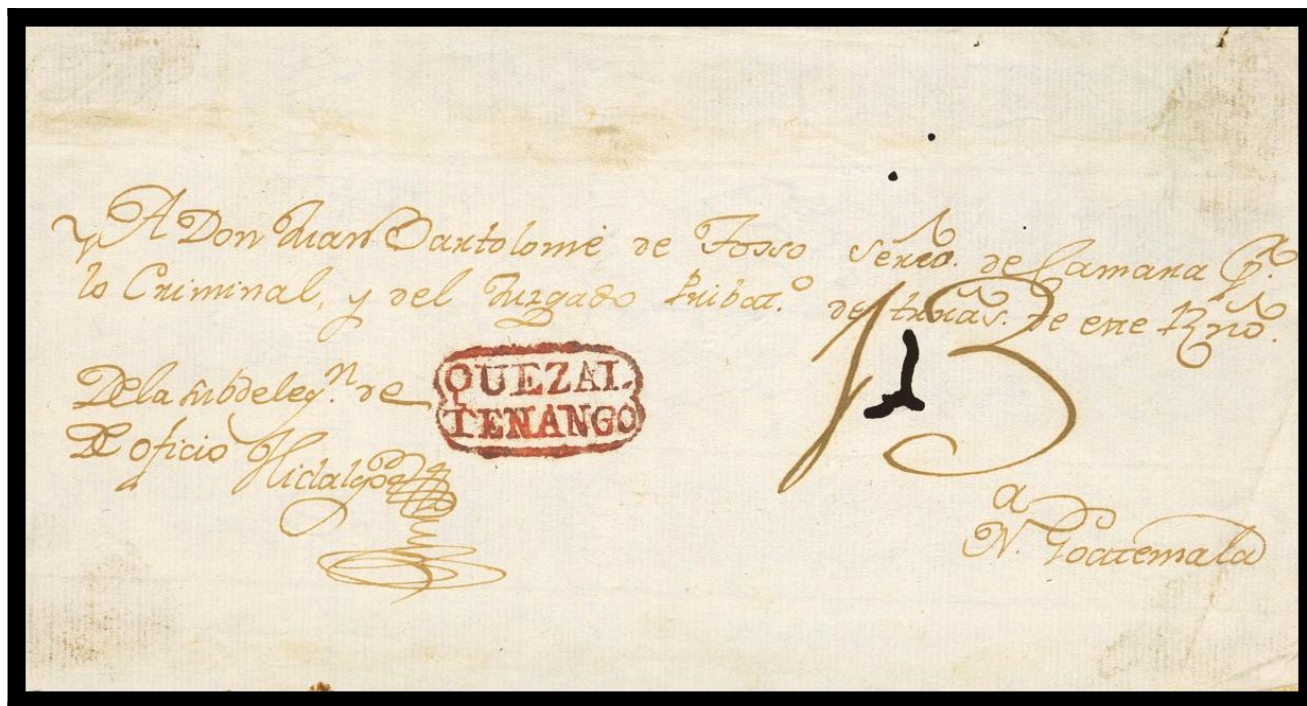 A Don Juan Bartolome de Fosso Serio. de Camara p.a
lo Criminal, y del Juzgado Pribat.o de tierras. de este Rno.
De la subdeleg.n de
QUEZAL
TENANGO
De oficio Hidalgo
13
a
N. Goatemala